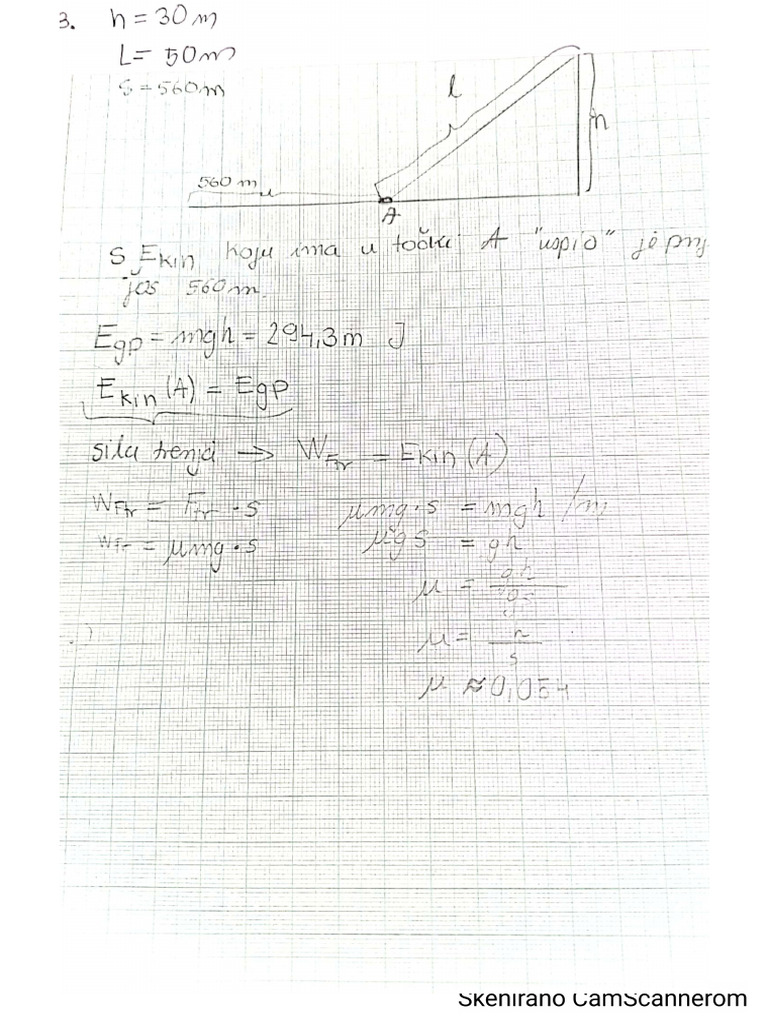 3. h = 30 m
L = 50 m
s = 560 m
l
h
560 m
A
S Ekin koju ima u točki A "uspio" je
još 560 m.
Egp = mgh = 294,3m J
Ekin (A) = Egp
sila trenja → WFtr = Ekin (A)
WFtr = Ftr · s μmg·s = mgh /m
WFtr = μmg·s μgs = gh
μ = gh/gs
μ = h/s
μ ≈ 0,054
Skenirano CamScannerom